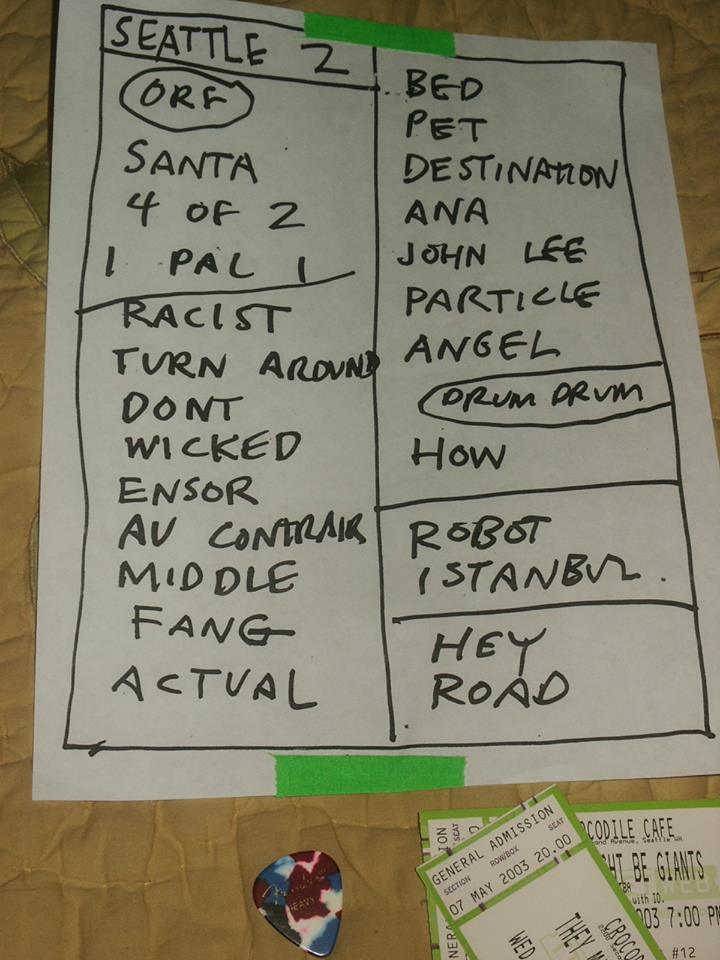 SEATTLE 2
ORF
SANTA
4 OF 2
1 PAL 1
RACIST
TURN AROUND
DONT
WICKED
ENSOR
AU CONTRAIR
MIDDLE
FANG
ACTUAL
BED
PET
DESTINATION
ANA
JOHN LEE
PARTICLE
ANGEL
DRUM DRUM
HOW
ROBOT
ISTANBUL.
HEY
ROAD
HEAVY
GENERAL ADMISSION
SECTION ROW/BOX SEAT
07 MAY 2003 20.00
CROCO
THEY M
WED
SEAT
ION
OCODILE CAFE
ond Avenue, Seattle WA
HT BE GIANTS
with ID.
003 7:00 PM
#12